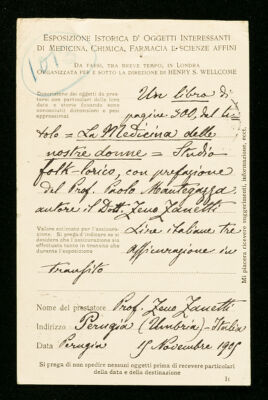 101
ESPOSIZIONE ISTORICA D' OGGETTI INTERESSANTI
DI MEDICINA, CHIMICA, FARMACIA E SCIENZE AFFINI
DA FARSI, TRA BREVE TEMPO, IN LONDRA
ORGANIZZATA PER E SOTTO LA DIREZIONE DI HENRY S. WELLCOME
Descrizione di oggetti da prestarsi con particolari della loro data e storia facendo
Un libro di
pagine 300, del ti-
tolo = La Medicina delle
nostre donne = Studio
folk-lorico, con prefazione
del Prof. Paolo Mantegazza
autore il Dott. Zeno Zanetti
Valore stimato per l'assicurazione. Si prega d'indicare se si desidera che l'assicurazione sia effettuata tanto in transito che durante l'esposizione
Lire italiane tre
assicurazione in
transito
Nome del prestatore Prof. Zeno Zanetti
Indirizzo Perugia (Umbria) - Italia
Data Perugia 15 Novembre 1905
Si prega di non spedire nessuni oggetti prima di ricevere particolari
della data e della destinazione
It
Mi piacera ricevere suggerimenti, informazione, ecc.